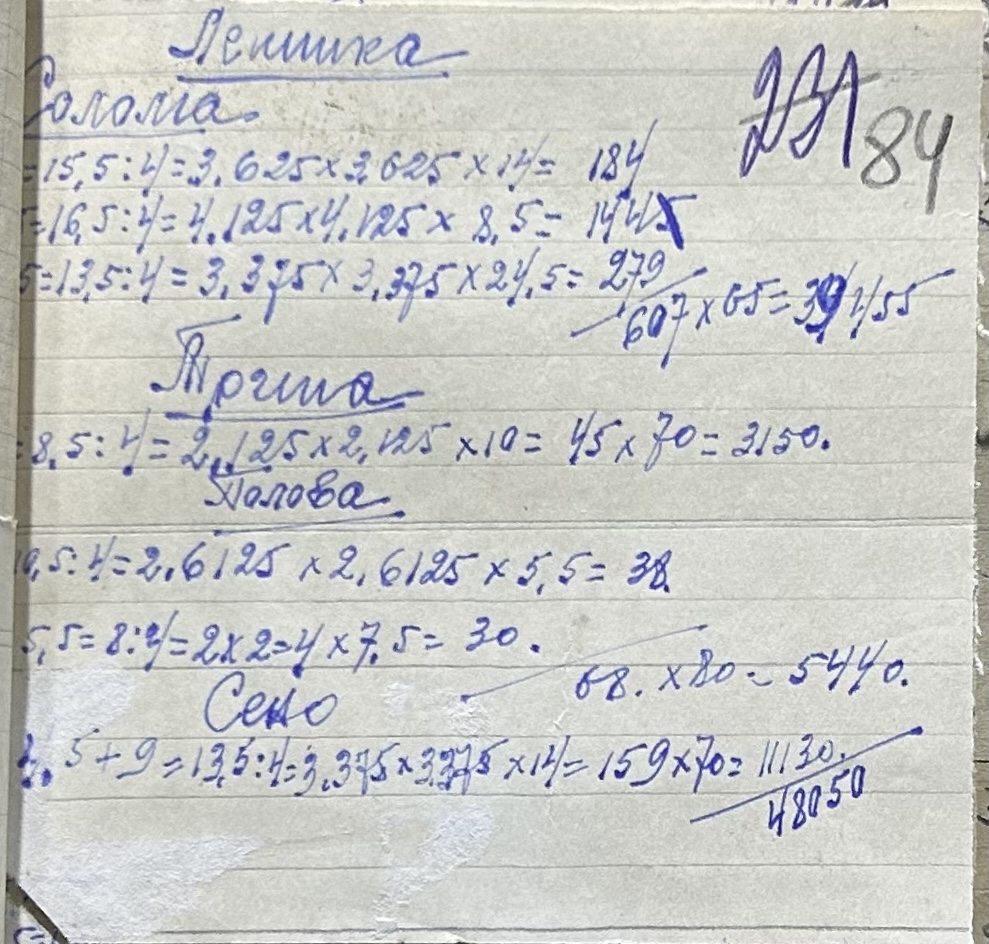 Ленинка
231
Солома
84
=15,5:4=3.625×3.625×14= 184
=16,5:4=4.125×4.125× 8,5= 144
5=13,5:4=3.375×3.375×24,5=279
607×65=39455
=8,5:4=2.125×2.125×10=45×70=3150.
Полова
0,5:4=2.6125×2.6125×5,5=38
5,5=8:4=2×2=4×7.5=30.
68.×80=5440.
Сено
5+9=13,5:4=3.375×3375×14=159×70=11130.
48050